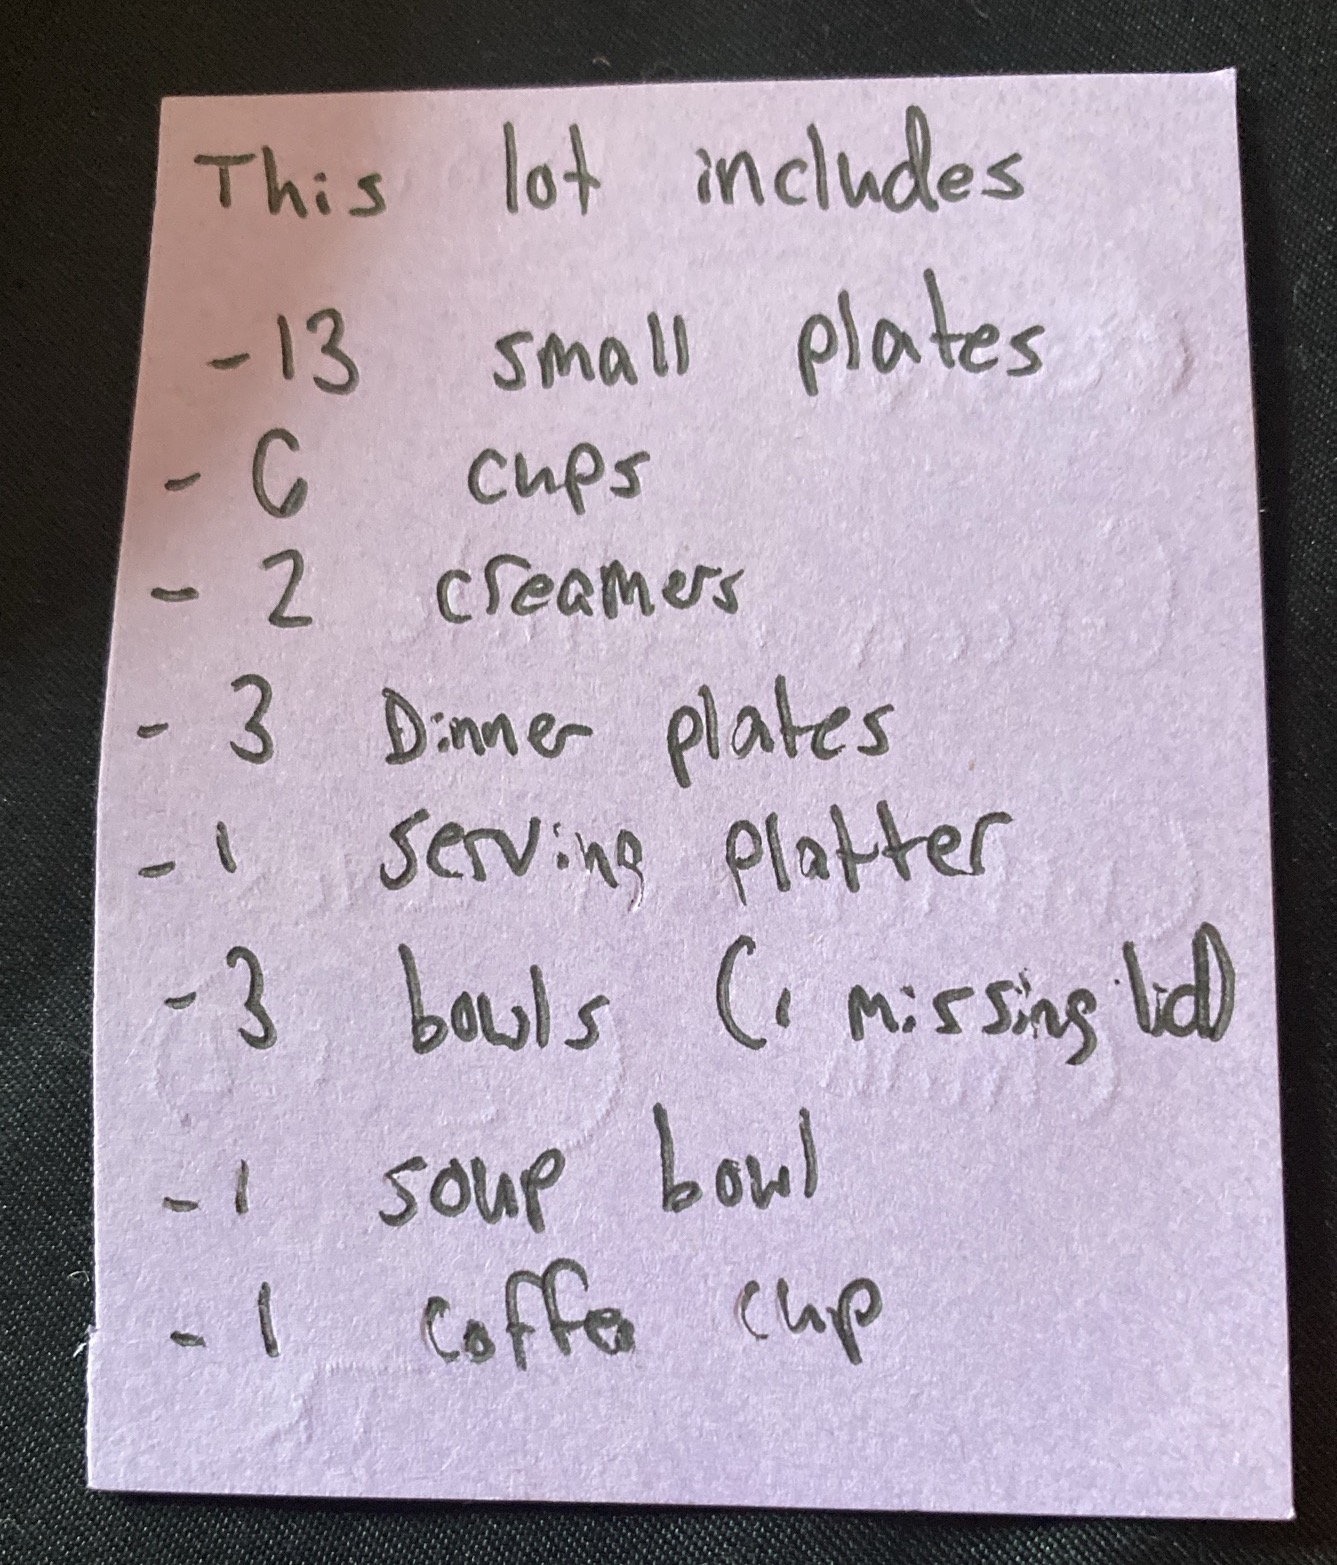 This lot includes
- 13 small plates
- 6 cups
- 2 creamers
- 3 Dinner plates
- 1 serving platter
- 3 bowls (1 missing lid)
- 1 soup bowl
- 1 coffe cup